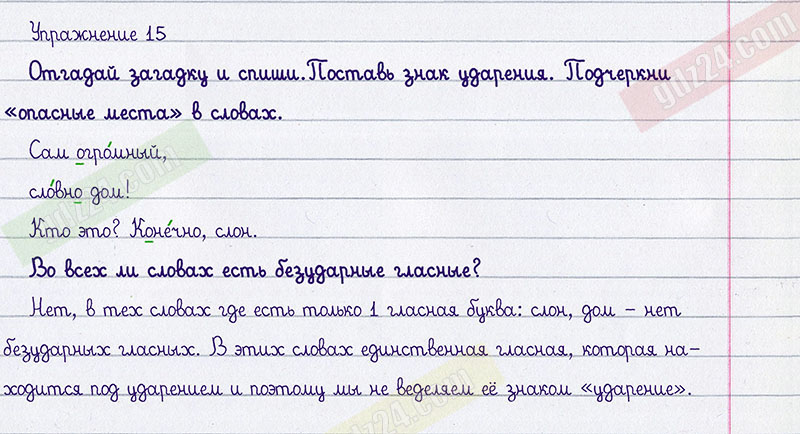 Упражнение 15
Отгадай загадку и спиши.Поставь знак ударения. Подчеркни
«опасные места» в словах.
Сам огро́мный,
сло́вно дом!
Кто это? Коне́чно, слон.
Во всех ли словах есть безударные гласные?
Нет, в тех словах где есть только 1 гласная буква: слон, дом – нет
безударных гласных. В этих словах единственная гласная, которая на–
ходится под ударением и поэтому мы не веделяем её знаком «ударение».
gdz24.com
gdz24.com
gdz24.com